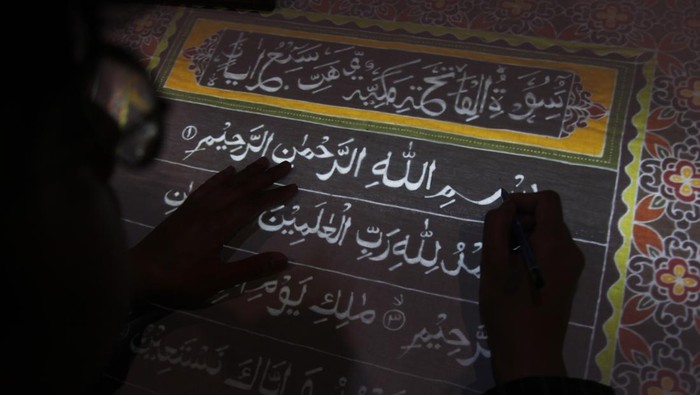 سُوْرَةُ الْفَاتِحَةِ مَكِّيَّة وَهِيَ سَبْعُ اٰيَات
بِسْمِ اللّٰهِ الرَّحْمٰنِ الرَّحِيْمِ ١
لِلّٰهِ رَبِّ الْعٰلَمِيْنَ
ٰحِيْمِ ٣ مٰلِكِ يَوْمِ
وَاِيَّاكَ نَسْتَعِيْنُ